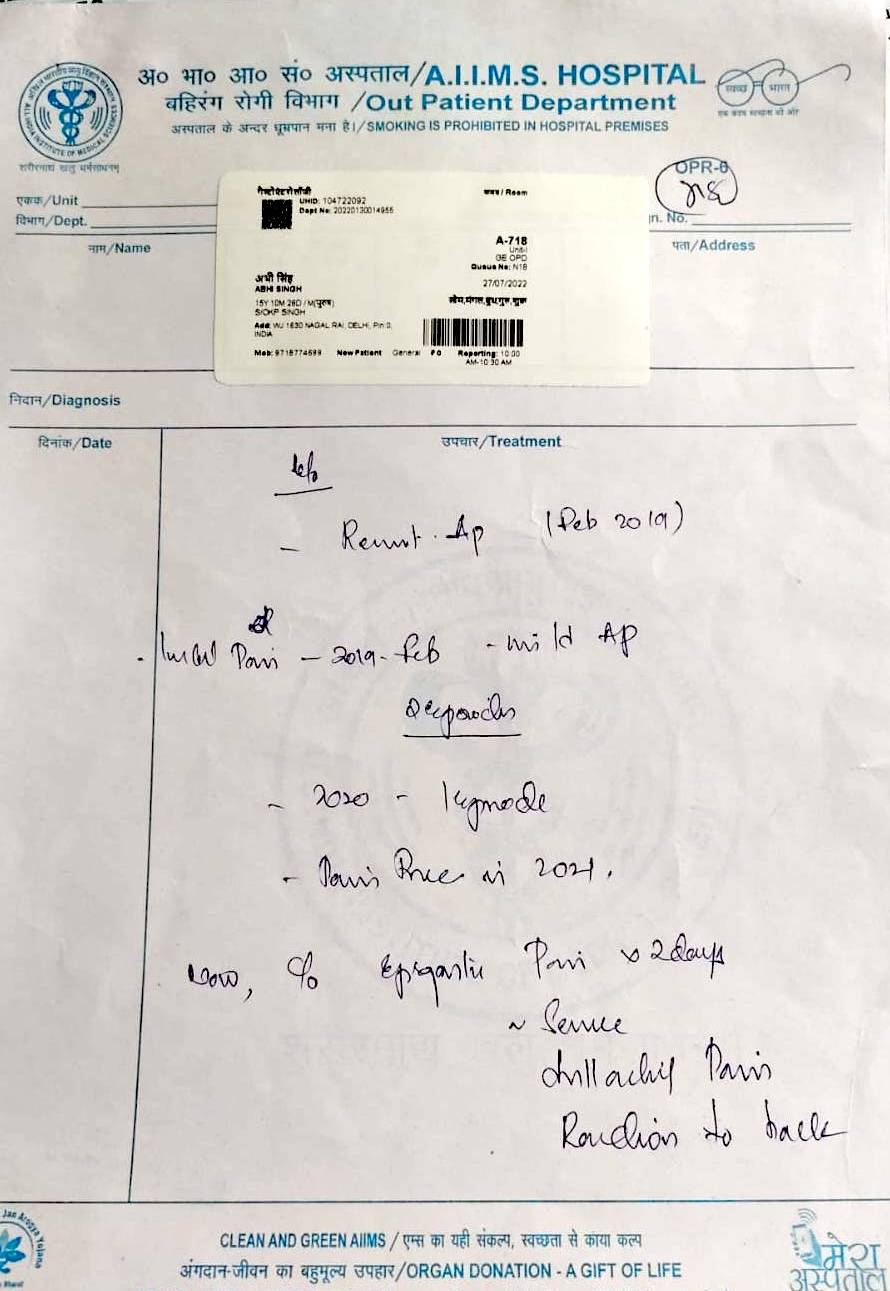 अ० भा० आ० सं० अस्पताल/A.I.I.M.S. HOSPITAL
बहिरंग रोगी विभाग /Out Patient Department
अस्पताल के अन्दर धूम्रपान मना है।/SMOKING IS PROHIBITED IN HOSPITAL PREMISES
स्वच्छ भारत
एक कदम स्वच्छता की ओर
ALL INDIA INSTITUTE OF MEDICAL SCIENCES
OPR-6
एकक/Unit
विभाग/Dept.
n. No.
नाम/Name
पता/Address
UHID: 104722092
Dept No: 20220130014955
कमरा / Room
A-718
Unit-I
GE OPD
Queue No: N18
अभी सिंह
ABHI SINGH
27/07/2022
15Y 10M 28D / M(पुरुष)
S/O KP SINGH
सोम,मंगल,बुध,गुरु,शुक्र
Add: WJ 1630 NAGAL RAI, DELHI, Pin:0,
INDIA
Mob: 9718774699 New Patient General ₹ 0 Reporting: 10:00
AM-10:30 AM
निदान/Diagnosis
दिनांक/Date
उपचार/Treatment
AP (Feb 2019)
Pain - 2019 - Feb - mild AP
- 2020 - 1 episode
- Pain free in 2021.
Now, c/o Epigastric Pain x 2 days
~ Severe
Pain
to back
Jan Arogya Yojana
CLEAN AND GREEN AIIMS / एम्स का यही संकल्प, स्वच्छता से काया कल्प
अंगदान-जीवन का बहुमूल्य उपहार/ORGAN DONATION - A GIFT OF LIFE
मेरा
अस्पताल